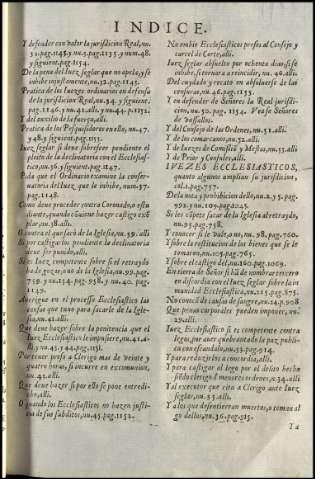 INDICE.
Y defender con valor la jurisdicion Real, nu.
32. pag. 1148. y nu. 3. pag. 1155. y num. 48.
y siguient. pag. 1154.
De la pena del juez seglar que no apela, y se
inhibe injustamente, nu. 32. pag. 1145.
Pratica de los Iuezes ordinarios en defensa
de la jurisdicion Real, nu. 34. y siguient.
pag. 1146. y nu. 41. alli, y nu. 44. p. 1152.
Y del auxilio de la fuerça, alli.
Pratica de los Pesquisidores en ello, nu. 47.
y 48. y siguient. pag. 1153.
Iuez seglar si deve sobreseer pendiente el
pleito de la declinatoria con el Ecclesias-
tico, nu. 36. y siguient. pag. 1147.
Pida que el Ordinario examine la conser-
natoria del Iuez, que le inhibe, num. 37.
pag. 1148.
Como deve proceder contra Coronado, o estu
diante, quando conviene hazer castigo exẽ
plar, nu. 38. alli.
O contra el que sacò de la Iglesia, nu. 39. alli
Si por castigarlos pendente la declinatoria
deve ser punido, alli.
Si es Iuez competente sobre si el retraydo
ha de gozar, o no de la Iglesia, nu. 99. pag.
759. y nu. 134. pag. 958. y nu. 40. pag.
1149.
Averigue en el processo Ecclesiastico las
causas que tuvo para sacarle de la Igle-
sia, nu. 41. alli.
Que deve hazer sobre la penitencia que el
Iuez Ecclesiastico le impusiere, nu. 41. a-
lli, y nu. 43. y 44. pag. 1152.
Parecer preso a Clerigo mas de veinte y
quatro horas, si incurre en excomunion,
nu. 42. alli.
Que deve hazer si por ello se pone entredi-
cho, alli.
O quando los Ecclesiasticos no hazen justi-
cia de sus subditos, nu. 45. pag. 1152.
No embie Ecclesiastico preso al Consejo y
carcel de Corte, alli.
Iuez seglar absuelto por ochenta dias, si se
inhibe, si tornar a a reincidir, nu. 46. alli.
Del cuydado y recato en absolverse de las
censuras, nu. 46. pag. 1153.
Y en defender de Señores la Real jurisdi-
cion, nu. 50. pag. 1154. Vea se Señores
de Vassallos.
Y del Consejo de las Ordenes, nu. 51. alli.
Y de los comarcanos, nu. 52. alli.
Y de Iuezes de Comission y Mestas, nu. 53. alli.
Y de Prior y Consules, alli.
IVEZES ECCLESIASTICOS,
quanto algunos amplian su jurisdicion,
col. 2. pag. 757.
De la nota y prohibicion dello, nu. 2. y 5. pag.
963. y nu. 105. pag. 1045.
Si les cõpete sacar de la Iglesia al retraydo,
nu. 95. pag. 758.
Y conocer si goza, o no, nu. 98. pag. 760.
Y sobre la restitucion de los bienes que se le
tomaron, nu. 105. pag. 765.
Y sobre el castigo del, nu. 160. pag. 1069.
En tierra de Señor si hà de nombrar tercero
en discordia con el Iuez seglar sobre la in
munidad Ecclesiastica, nu. 125. pag. 875.
No conoce de causas de sangre, nu. 24. p. 908
Que penas corporales pueden imponer, nu.
32. alli.
Iuez Ecclesiastico si es competente contra
legos, por aver quebrantado la paz publi-
ca con escandalo, nu. 33. pag. 914.
Y para reduzirlos a concordia, alli.
Y para castigar al lego por el delito hecho
siẽdo clerigo de menores ordenes, n. 34. alli
Y al executor que cita a Clerigo ante Iuez
seglar, nu. 35. alli.
Y a los que desentierran muertos, o comen al
go dellos, nu. 36. pag. 915.
Y a